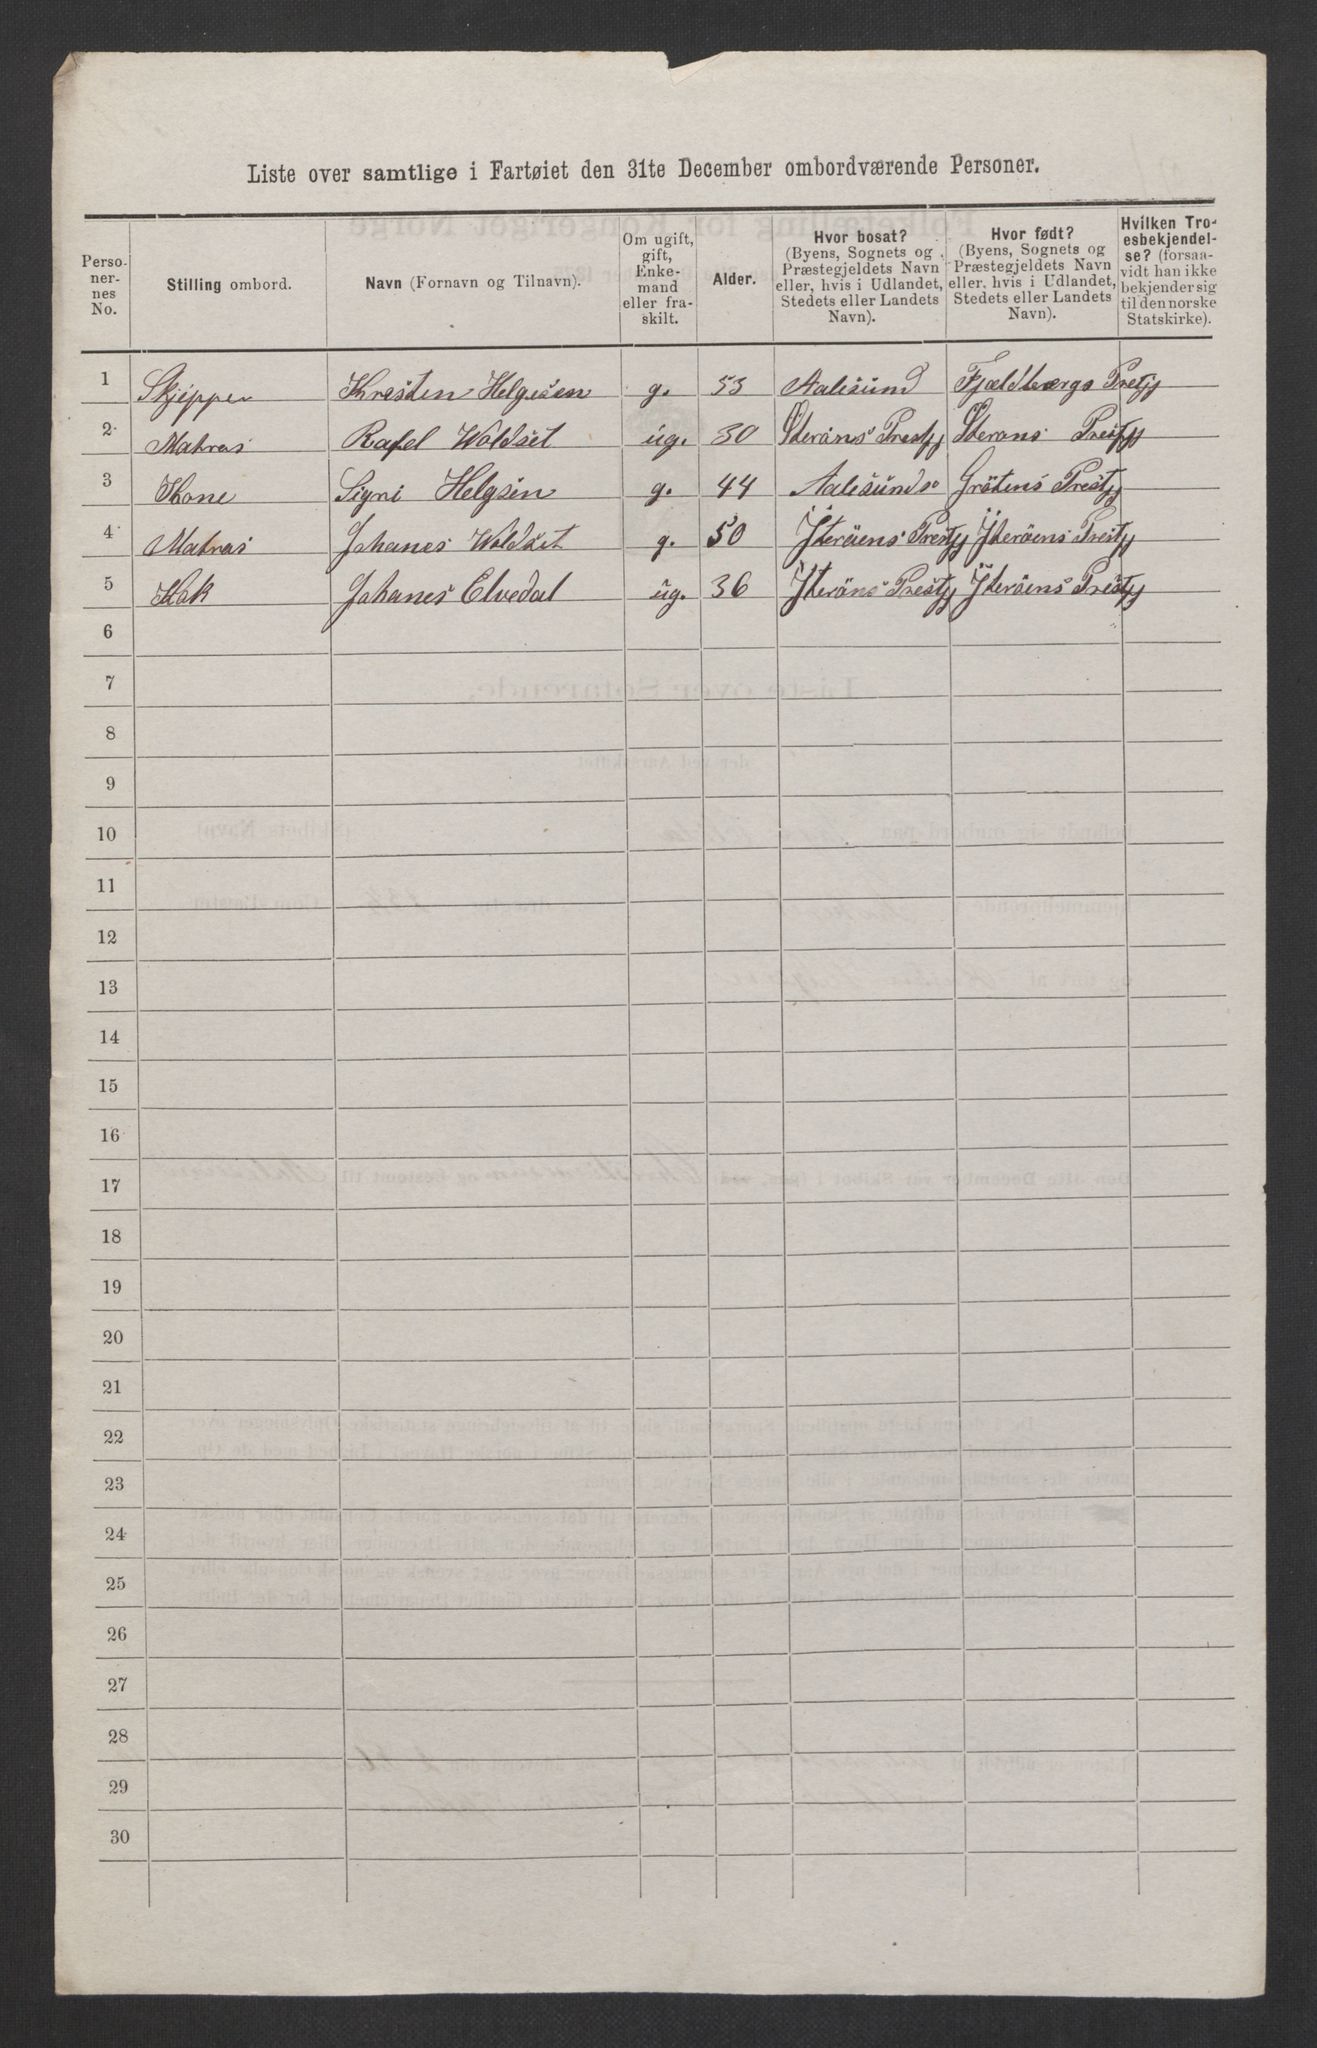 Liste over samtlige i Fartøiet den 31te December ombordværende Personer.
Perso-
ner-
nes
No.
Stilling ombord.
Navn (Fornavn og Tilnavn).
Om ugift,
gift,
Enke-
mand
eller fra-
skilt.
Alder.
Hvor bosat?
(Byens, Sognets og
Præstegjeldets Navn
eller, hvis i Udlandet,
Stedets eller Landets
Navn).
Hvor født?
(Byens, Sognets og
Præstegjeldets Navn
eller, hvis i Udlandet,
Stedets eller Landets
Navn).
Hvilken Tro-
esbekjendel-
se? (forsaa-
vidt han ikke
bekjender sig
til den norske
Statskirke).
1 Skjipper Kresten Helgesen g. 53 Aalesund Fjældbergs Prestgj
2 Matros Rafel Woldset ug. 30 Prestgj Prestgj
3 Kone Signi Helgsen g. 44 Aalesunds Grötens Prestgj
4 Matros Johanes Woldset g. 50 Yteröens Prestgj Yteröens Prestgj
5 Kok Johanes Elvedal ug. 36 Yteröns Prestgj Yteröens Prestgj
6
7
8
9
10
11
12
13
14
15
16
17
18
19
20
21
22
23
24
25
26
27
28
29
30